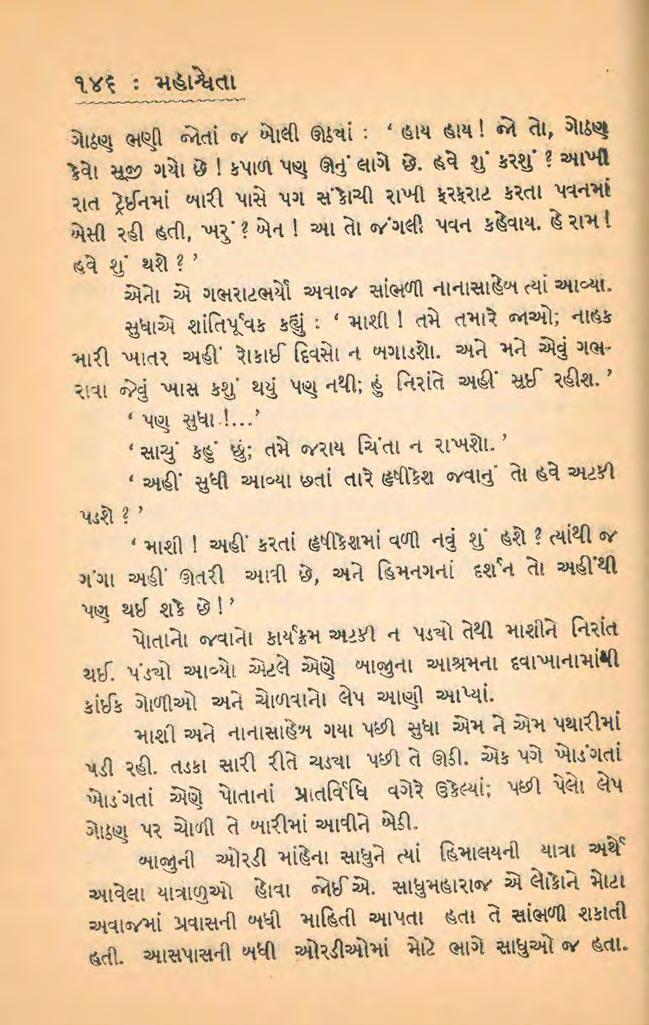 ૧૪૬ : મહાશ્વેતા
ગોઠણ ભણી જોતાં જ બોલી ઊઠ્યાં : ‘ હાય હાય! જો તો, ગોઠણ
કેવો સૂજી ગયો છે ! કપાળ પણ ઊનું લાગે છે. હવે શું કરશું ? આખી
રાત ટ્રેઈનમાં બારી પાસે પગ સંકોચી રાખી ફરફરાટ કરતા પવનમાં
બેસી રહી હતી, ખરું ? બેન ! આ તો જંગલી પવન કહેવાય. હે રામ !
હવે શું થશે ? ’
એનો એ ગભરાટભર્યો અવાજ સાંભળી નાનાસાહેબ ત્યાં આવ્યા.
સુધાએ શાંતિપૂર્વક કહ્યું : ‘ માશી ! તમે તમારે જાઓ; નાહક
મારી ખાતર અહીં રોકાઈ દિવસો ન બગાડશો. અને મને એવું ગભ-
રાવા જેવું ખાસ કશું થયું પણ નથી; હું નિરાંતે અહીં સૂઈ રહીશ. ’
‘ પણ સુધા !...’
‘ સાચું કહું છું; તમે જરાય ચિંતા ન રાખશો. ’
‘ અહીં સુધી આવ્યા છતાં તારે હૃષીકેશ જવાનું તો હવે અટકી
પડશે ? ’
‘ માશી ! અહીં કરતાં હૃષીકેશમાં વળી નવું શું હશે ? ત્યાંથી જ
ગંગા અહીં ઊતરી આવી છે, અને હિમનગનાં દર્શન તો અહીંથી
પણ થઈ શકે છે ! ’
પોતાનો જવાનો કાર્યક્રમ અટકી ન પડ્યો તેથી માશીને નિરાંત
થઈ. પંડ્યો આવ્યો એટલે એણે બાજુના આશ્રમના દવાખાનામાંથી
કાંઈક ગોળીઓ અને ચોળવાનો લેપ આણી આપ્યાં.
માશી અને નાનાસાહેબ ગયા પછી સુધા એમ ને એમ પથારીમાં
પડી રહી. તડકા સારી રીતે ચડ્યા પછી તે ઊઠી. એક પગે ખોડંગતાં
ખોડંગતાં એણે પોતાનાં પ્રાતર્વિધિ વગેરે ઉકેલ્યાં; પછી પેલો લેપ
ગોઠણ પર ચોળી તે બારીમાં આવીને બેઠી.
બાજુની ઓરડી માંહેના સાધુને ત્યાં હિમાલયની યાત્રા અર્થે
આવેલા યાત્રાળુઓ હોવા જોઈએ. સાધુમહારાજ એ લોકોને મોટા
અવાજમાં પ્રવાસની બધી માહિતી આપતા હતા તે સાંભળી શકાતી
હતી. આસપાસની બધી ઓરડીઓમાં મોટે ભાગે સાધુઓ જ હતા.